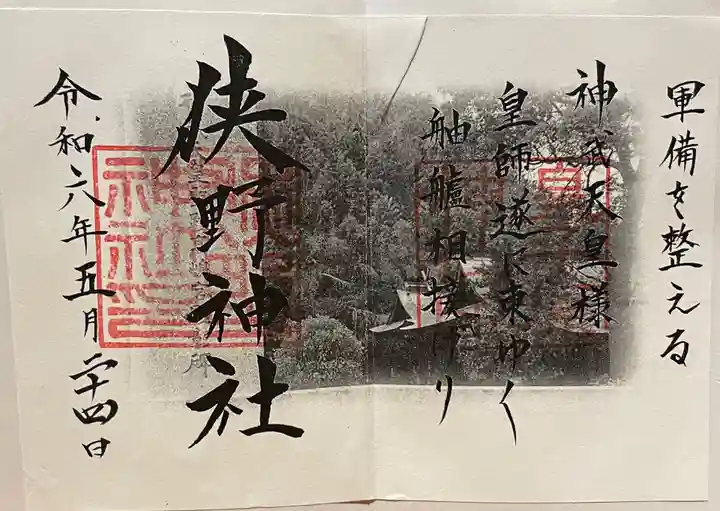 軍備を整える
神武天皇様
皇師遂に東ゆく
舳艫相接げり
狭野神社
令和六年五月二十四日